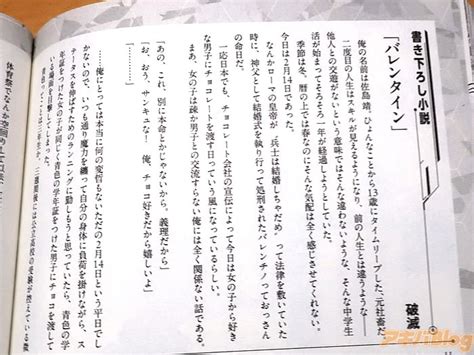 書き下ろし小説
「バレンタイン」
破滅
俺の名前は佐島靖、ひょんなことから13歳にタイムリープした、元社畜だ。
二度目の人生はスキルが見えるようになり、前の人生とは違うような――
他人との交流がないという意味ではそんな違わないような、そんな中学生
活が始まってそろそろ一年が経過しようとしていた。
季節は冬、暦の上では春なのにそんな気配は全く感じさせてくれない、
今日は2月14日であった。
なんかローマの皇帝が〝兵士は結婚しちゃだめ〟って法律を敷いていた
時に、神父として結婚式を執り行って処刑されたバレンチノっておっさん
の命日だ。
一応日本でも、チョコレート会社の宣伝によって今日は女の子から好き
な男子にチョコレートを渡す日っていう風になっているらしい。
まあ、女の子は疎か男子との交流すらない俺には全く関係ない話だ。
「あの、これ、別に本命とかじゃないから。義理だから」
「お、おう、サンキュな！　俺、チョコ好きだから嬉しいよ」
……俺にとっては本当に何の変哲もないただの2月14日という平日でし
かないので、いつも通り魔力を纏って自分の身体に負荷を掛けながら、ス
テータスを伸ばすためのランニングに勤しもうと思っていたら、青色の学
年証をつけた女の子が同じく青色の学年証をつけた男子にチョコを渡して
いる場面を目撃してしまった。
アキバblog